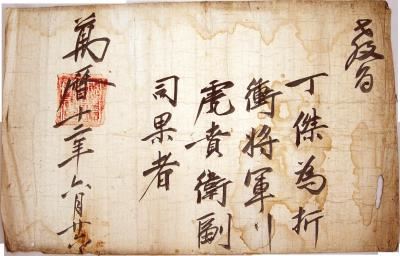 敎旨
丁傑為折
衝將軍行
虎賁衛副
司果者
萬曆十二年六月廿